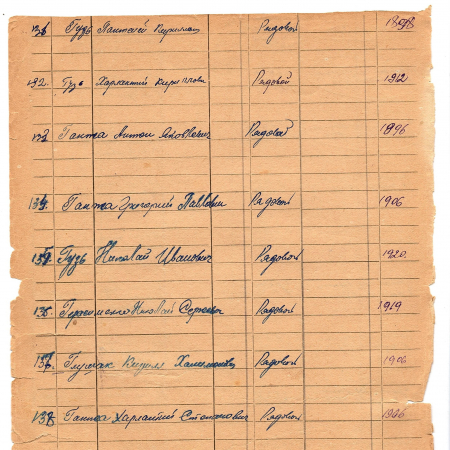 131 Гудь Пантелей Кирилович Рядовой 1898
132. Гузь Харлантий Кирилович Рядовой 1912
133 Ганжа Антон Яковлевич Рядовой 1896
134. Ганжа Григорий Павлович Рядовой 1906
135. Гузь Николай Иванович Рядовой 1920.
136. Герасименко Николай Сергеевич Рядовой 1919
137. Глущак Рядовой 1906
138. Ганжа Харлантий Степанович Рядовой